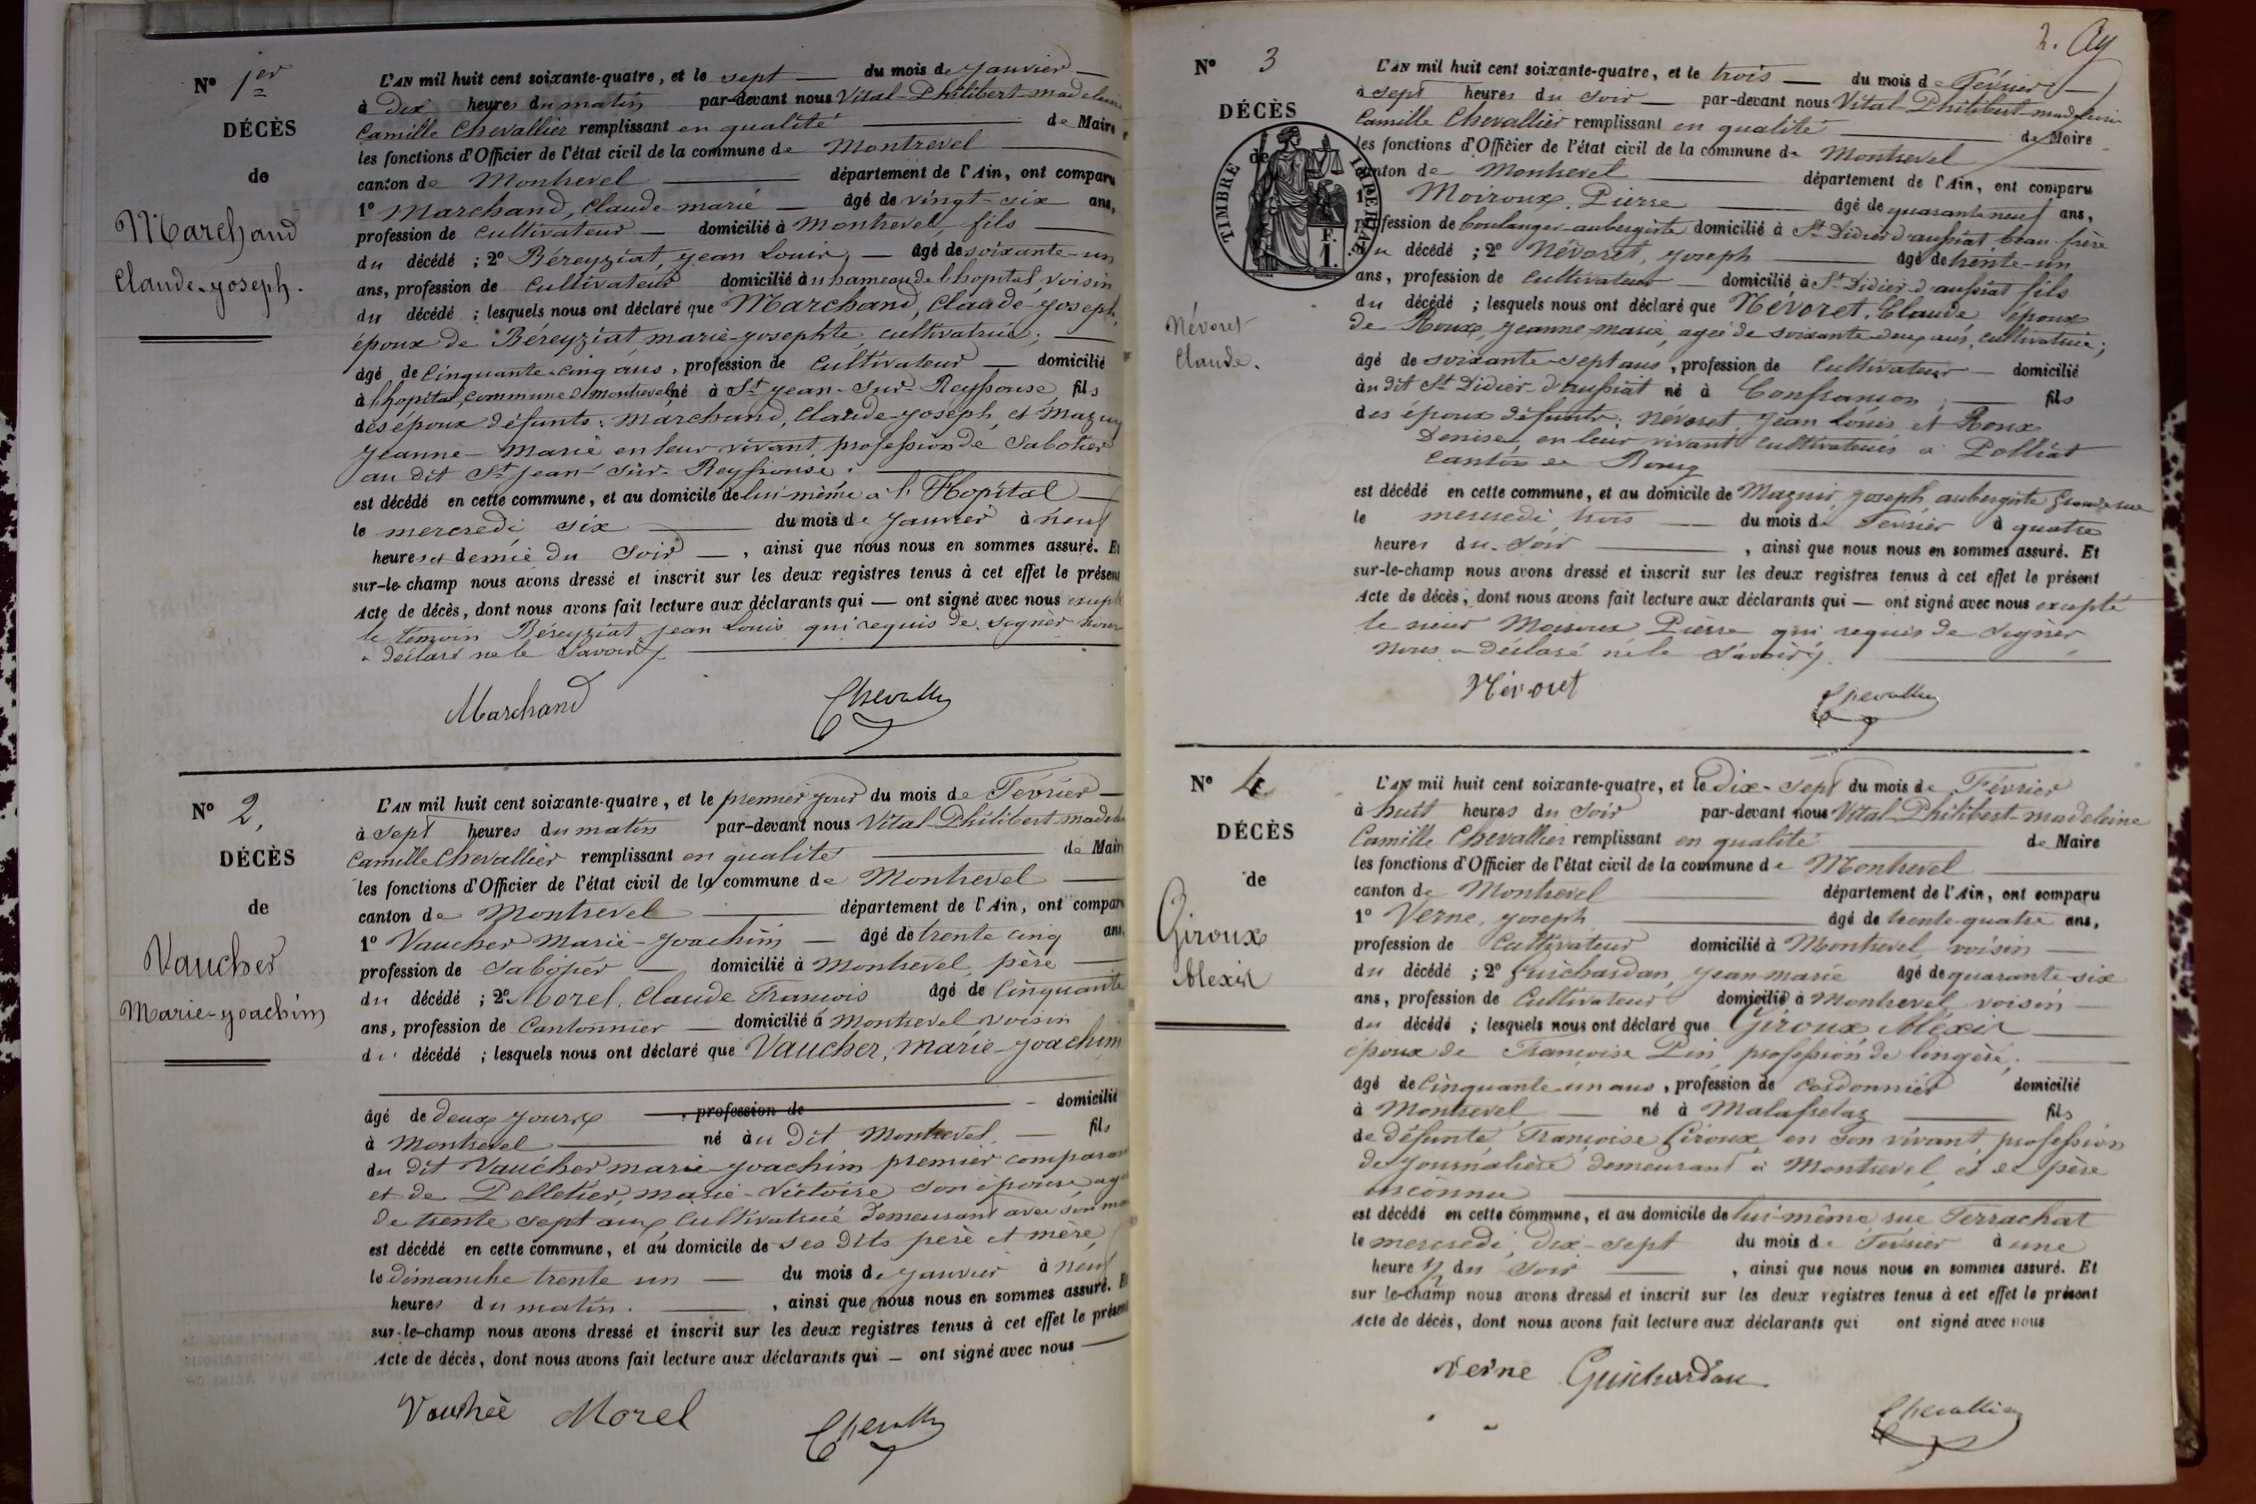 N° 1er
DÉCÈS
de
Marchand
Claude-Joseph.
L'AN mil huit cent soixante-quatre, et le sept du mois de Janvier
à Dix heures du matin par-devant nous Vital-Philibert-madeleine
Camille Chevallier remplissant en qualité de Maire
les fonctions d'Officier de l'état civil de la commune de Montrevel
canton de Montrevel département de l'Ain, ont comparu
1° Marchand, Claude-marie âgé de vingt-six ans,
profession de cultivateur domicilié à Montrevel, fils
du décédé ; 2° Béreyziat, Jean Louis, âgé de soixante-un
ans, profession de cultivateur domicilié au hameau de l'hopital, voisin
du décédé ; lesquels nous ont déclaré que Marchand, Claude-Joseph,
époux de Béreyziat, marie-josephte, cultivatrice ;
âgé de cinquante-cinq ans, profession de cultivateur domicilié
à l'hopital, commune de montrevel né à St Jean-sur-Reyssouse, fils
des époux défunts : Marchand, Claude-Joseph, et Mazuy
Jeanne-Marie en leur vivant profession de Sabotier
au dit St Jean-sur-Reyssouse.
est décédé en cette commune, et au domicile de lui-même à l'Hopital
le mercredi six du mois de Janvier à neuf
heures et demie du Soir, ainsi que nous nous en sommes assuré. Et
sur-le-champ nous avons dressé et inscrit sur les deux registres tenus à cet effet le présent
Acte de décès, dont nous avons fait lecture aux déclarants qui ont signé avec nous excepté
le témoin Béreyziat, Jean Louis qui requis de signer nous
a déclaré ne le Savoir.
Marchand Chevallier
N° 2,
DÉCÈS
de
Vaucher
Marie-Joachim
L'AN mil huit cent soixante-quatre, et le premier jour du mois de Février
à sept heures du matin par-devant nous Vital-Philibert-madeleine
Camille Chevallier remplissant en qualité de Maire
les fonctions d'Officier de l'état civil de la commune de Montrevel
canton de Montrevel département de l'Ain, ont comparu
1° Vaucher Marie-Joachim âgé de trente cinq ans,
profession de domicilié à Montrevel, père
du décédé ; 2° Morel, Claude François âgé de Cinquante
ans, profession de Cantonnier domicilié à Montrevel voisin
du décédé ; lesquels nous ont déclaré que Vaucher, Marie-Joachim
âgé de deux jours profession de domicilié
à Montrevel né au Dit Montrevel, fils
du dit Vaucher marie-Joachim premier comparant
et de Pelletier, marie-Victoire son épouse, agée
de trente sept ans cultivatrice demeurant avec son mari
est décédé en cette commune, et au domicile de ses dits père et mère,
le dimanche trente un du mois de Janvier à neuf
heures du matin, ainsi que nous nous en sommes assuré. Et
sur-le-champ nous avons dressé et inscrit sur les deux registres tenus à cet effet le présent
Acte de décès, dont nous avons fait lecture aux déclarants qui ont signé avec nous
Morel Chevallier
2.
N° 3
DÉCÈS
de
TIMBRE IMPÉRIAL
Névoret
Claude.
L'AN mil huit cent soixante-quatre, et le trois du mois de Février
à sept heures du Soir par-devant nous Vital-Philibert-madeleine
Camille Chevallier remplissant en qualité de Maire
les fonctions d'Officier de l'état civil de la commune de Montrevel
canton de Montrevel département de l'Ain, ont comparu
1° Moiroux, Pierre âgé de quarante neuf ans,
profession de boulanger-aubergiste domicilié à St Didier d'aussiat beau-frère
du décédé ; 2° Névoret, Joseph âgé de trente-un
ans, profession de cultivateur domicilié à St Didier d'aussiat fils
du décédé ; lesquels nous ont déclaré que Névoret, Claude époux
de Roux, Jeanne-marie, agée de soixante-deux ans, cultivatrice ;
âgé de soixante-sept ans, profession de Cultivateur domicilié
au dit St Didier-d'aussiat né à Confrançon, fils
des époux défunts, Névoret Jean Louis et Roux
Denise, en leur vivant cultivateurs à Polliat
canton de Bourg
est décédé en cette commune, et au domicile de Magnin Joseph aubergiste Grande rue
le mercredi trois du mois de Février à quatre
heures du Soir, ainsi que nous nous en sommes assuré. Et
sur-le-champ nous avons dressé et inscrit sur les deux registres tenus à cet effet le présent
Acte de décès, dont nous avons fait lecture aux déclarants qui ont signé avec nous excepté
le sieur Moiroux Pierre qui requis de signer,
nous a déclaré ne le savoir.
Névoret Chevallier
N° 4
DÉCÈS
de
Giroux
Alexis
L'AN mil huit cent soixante-quatre, et le Dix-sept du mois de Février
à huit heures du Soir par-devant nous Vital-Philibert-madeleine
Camille Chevallier remplissant en qualité de Maire
les fonctions d'Officier de l'état civil de la commune de Montrevel
canton de Montrevel département de l'Ain, ont comparu
1° Verne, Joseph âgé de trente-quatre ans,
profession de Cultivateur domicilié à Montrevel, voisin
du décédé ; 2° Guichardan, Jean-marie âgé de quarante-six
ans, profession de Cultivateur domicilié à Montrevel, voisin
du décédé ; lesquels nous ont déclaré que Giroux, Alexis
époux de Françoise Pin profession de lingère ;
âgé de Cinquante-un ans, profession de Cordonnier domicilié
à Montrevel, né à Malafretaz fils
de défunte, Françoise Giroux en son vivant, profession
de Journalière demeurant à Montrevel, et de père
inconnu
est décédé en cette commune, et au domicile de lui-même, rue Terrachat
le mercredi, dix-sept du mois de Février à une
heure ½ du Soir, ainsi que nous nous en sommes assuré. Et
sur le-champ nous avons dressé et inscrit sur les deux registres tenus à cet effet le présent
Acte de décès, dont nous avons fait lecture aux déclarants qui ont signé avec nous
Verne Guichardan
Chevallier